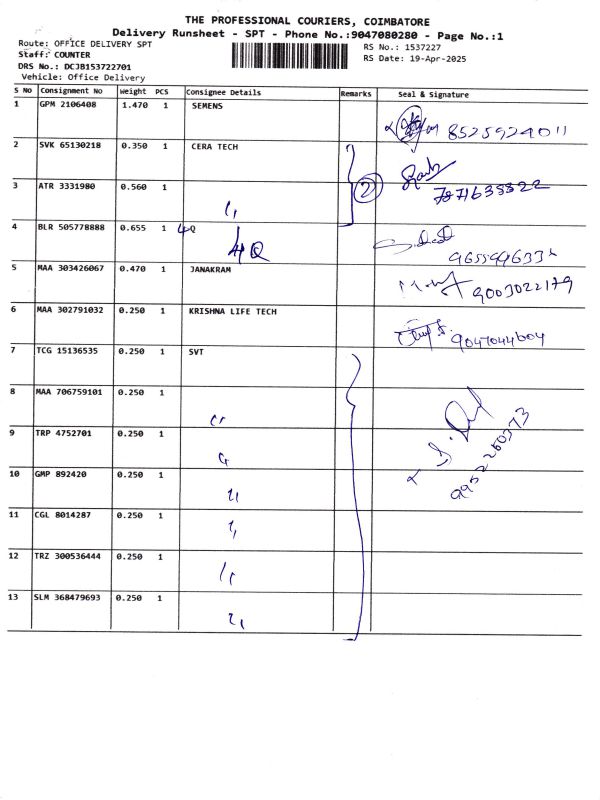 THE PROFESSIONAL COURIERS, COIMBATORE
Delivery Runsheet - SPT - Phone No.:9047080280 - Page No.:1
Route: OFFICE DELIVERY SPT
RS No.: 1537227
Staff: COUNTER
RS Date: 19-Apr-2025
DRS No.: DCJB153722701
Vehicle: Office Delivery
S No Consignment No Weight PCS Consignee Details Remarks Seal & Signature
1 GPM 2106408 1.470 1 SEMENS
8525924011
2 SVK 65130218 0.350 1 CERA TECH
2
3 ATR 3331980 0.560 1 〃
7871635822
4 BLR 505778888 0.655 1 4Q
4Q
5 MAA 303426067 0.470 1 JANAKRAM
9003022179
6 MAA 302791032 0.250 1 KRISHNA LIFE TECH
9047044604
7 TCG 15136535 0.250 1 SVT
8 MAA 706759101 0.250 1 〃
9952260373
9 TRP 4752701 0.250 1 〃
10 GMP 892420 0.250 1 〃
11 CGL 8014287 0.250 1 〃
12 TRZ 300536444 0.250 1 〃
13 SLM 368479693 0.250 1 〃